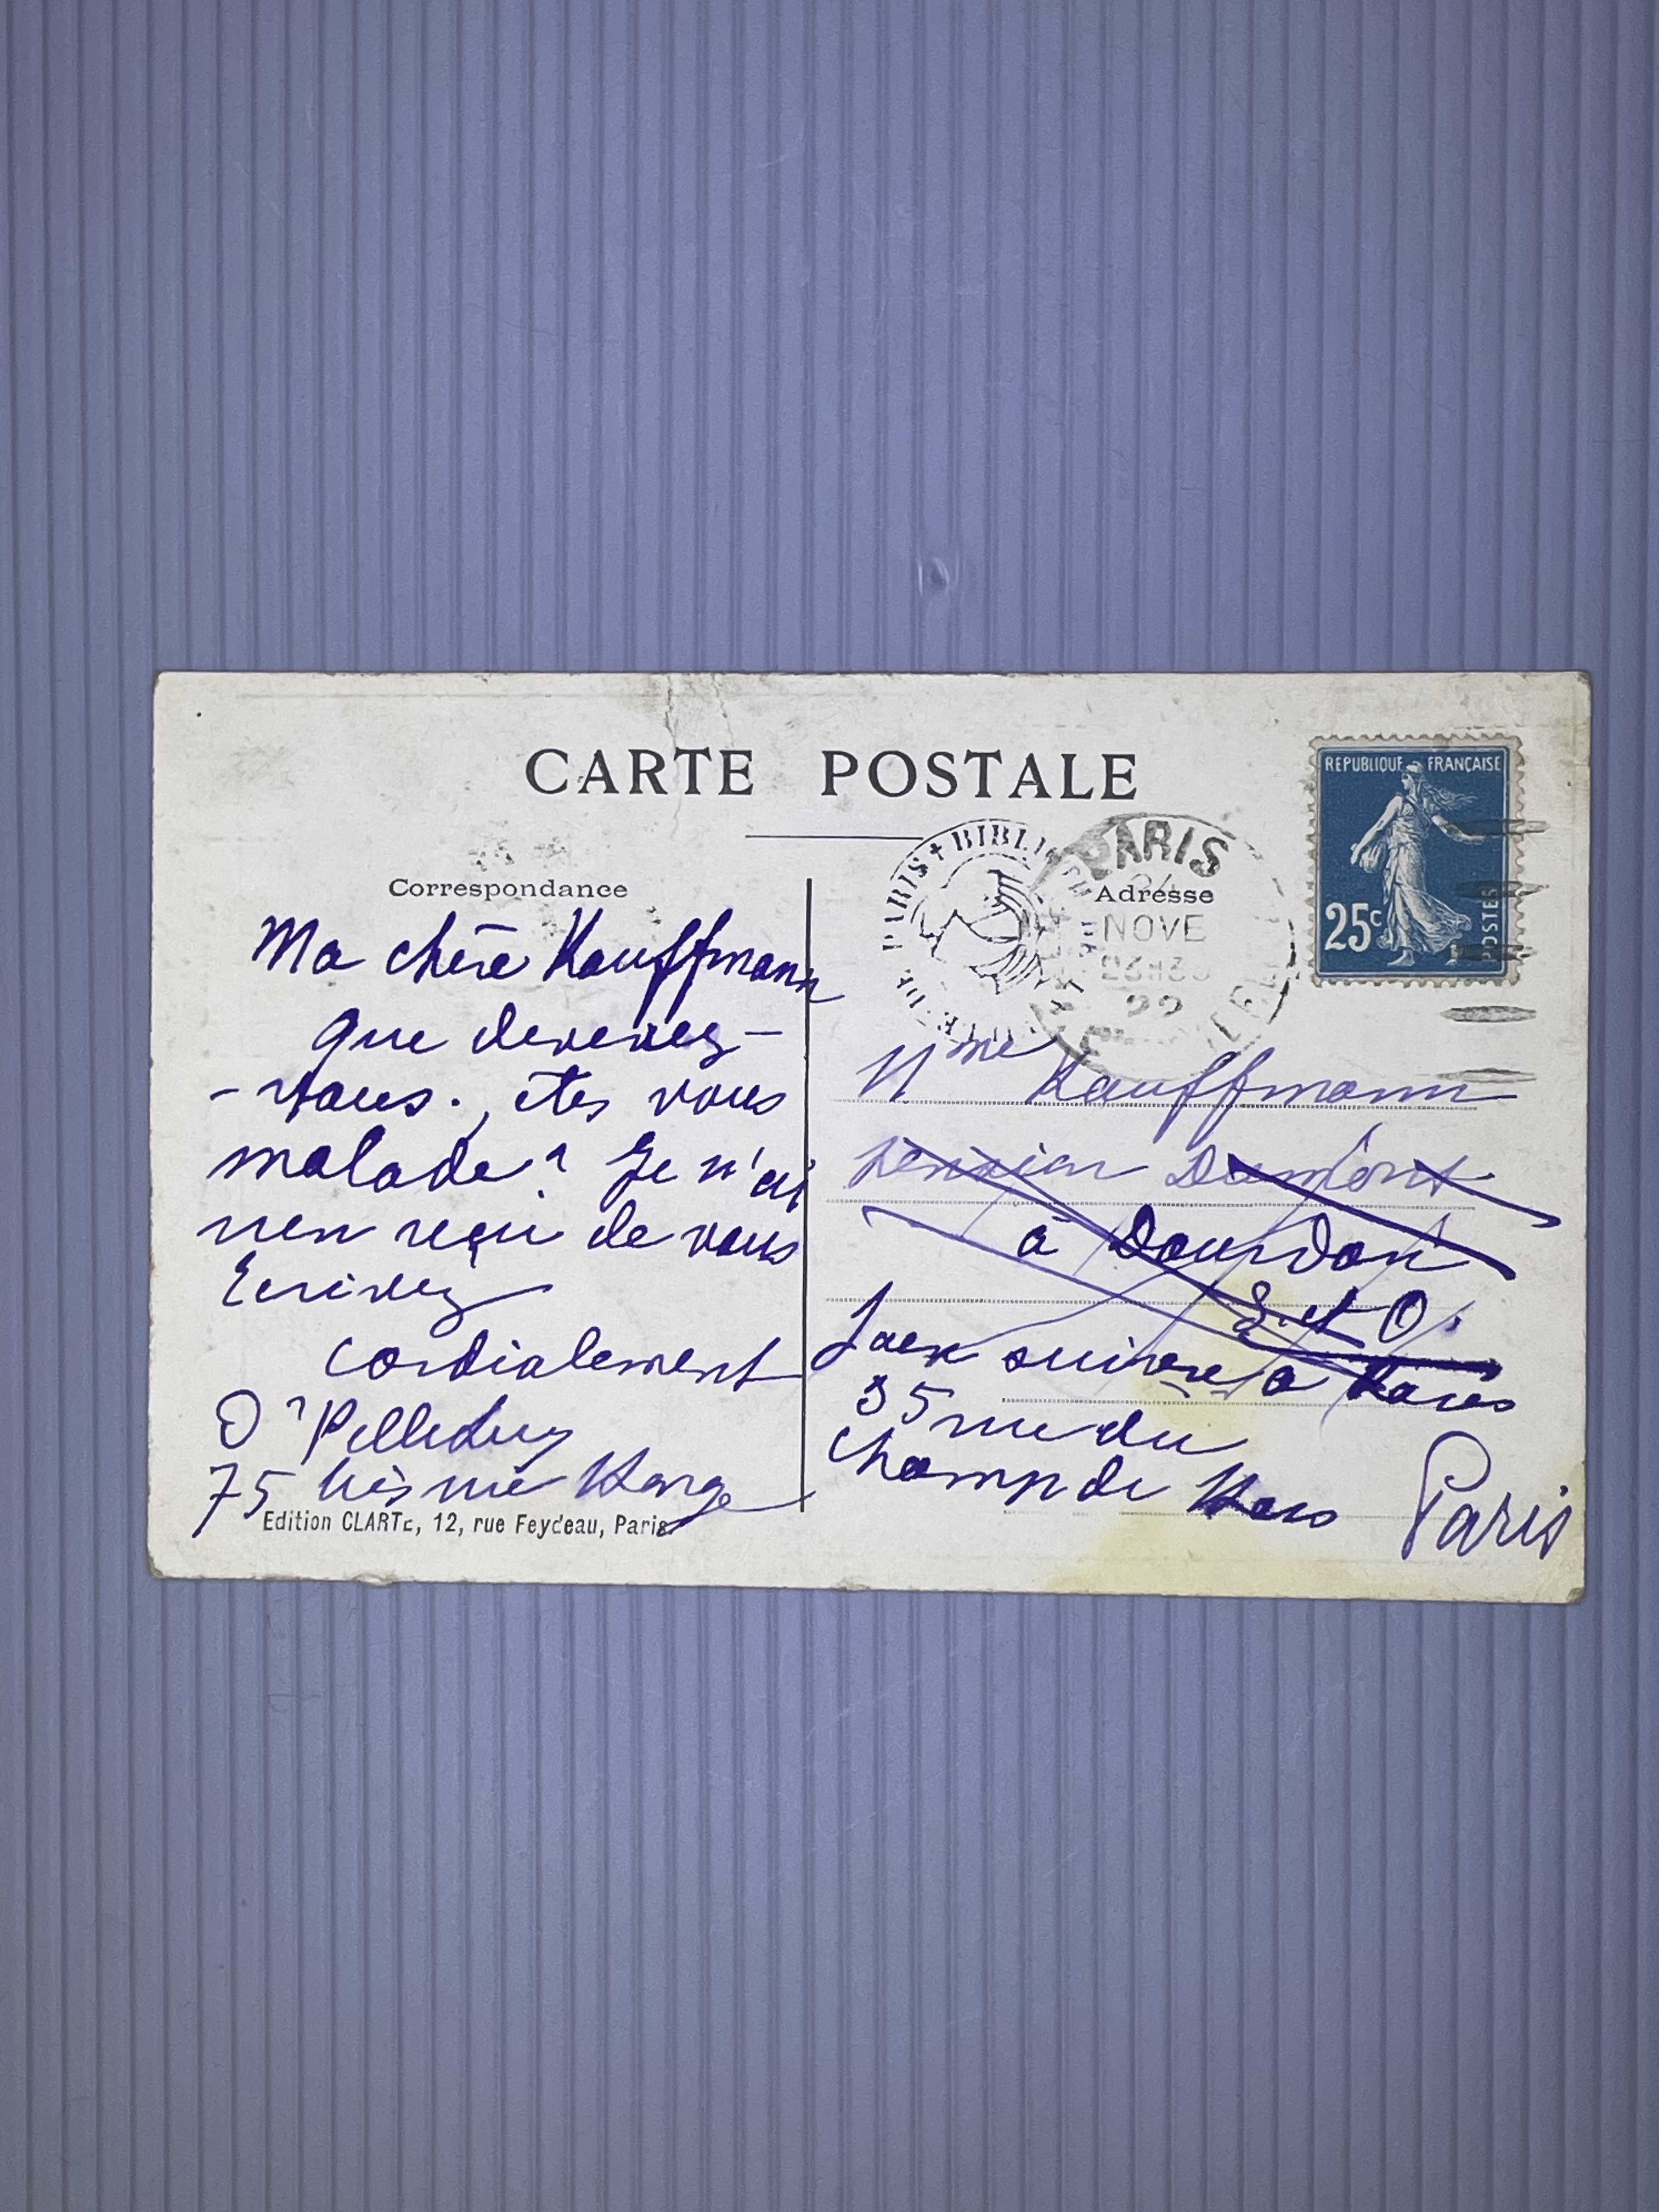 CARTE POSTALE
Correspondance
Ma chère Kauffmann
que devenez-
-vous., êtes vous
malade? Je n'ai
rien reçu de vous
Ecrivez
cordialement
75 bis rue
Edition CLARTé, 12, rue Feydeau, Paris
PARIS
Adresse
NOVE
22
PARIS + BIBLI
REPUBLIQUE FRANÇAISE
25c
POSTES
Mme Kauffmann
pension Dumont
à Dourdan
S. et O.
Faex suivre à Paris
35 rue du
Champ de Mars
Paris